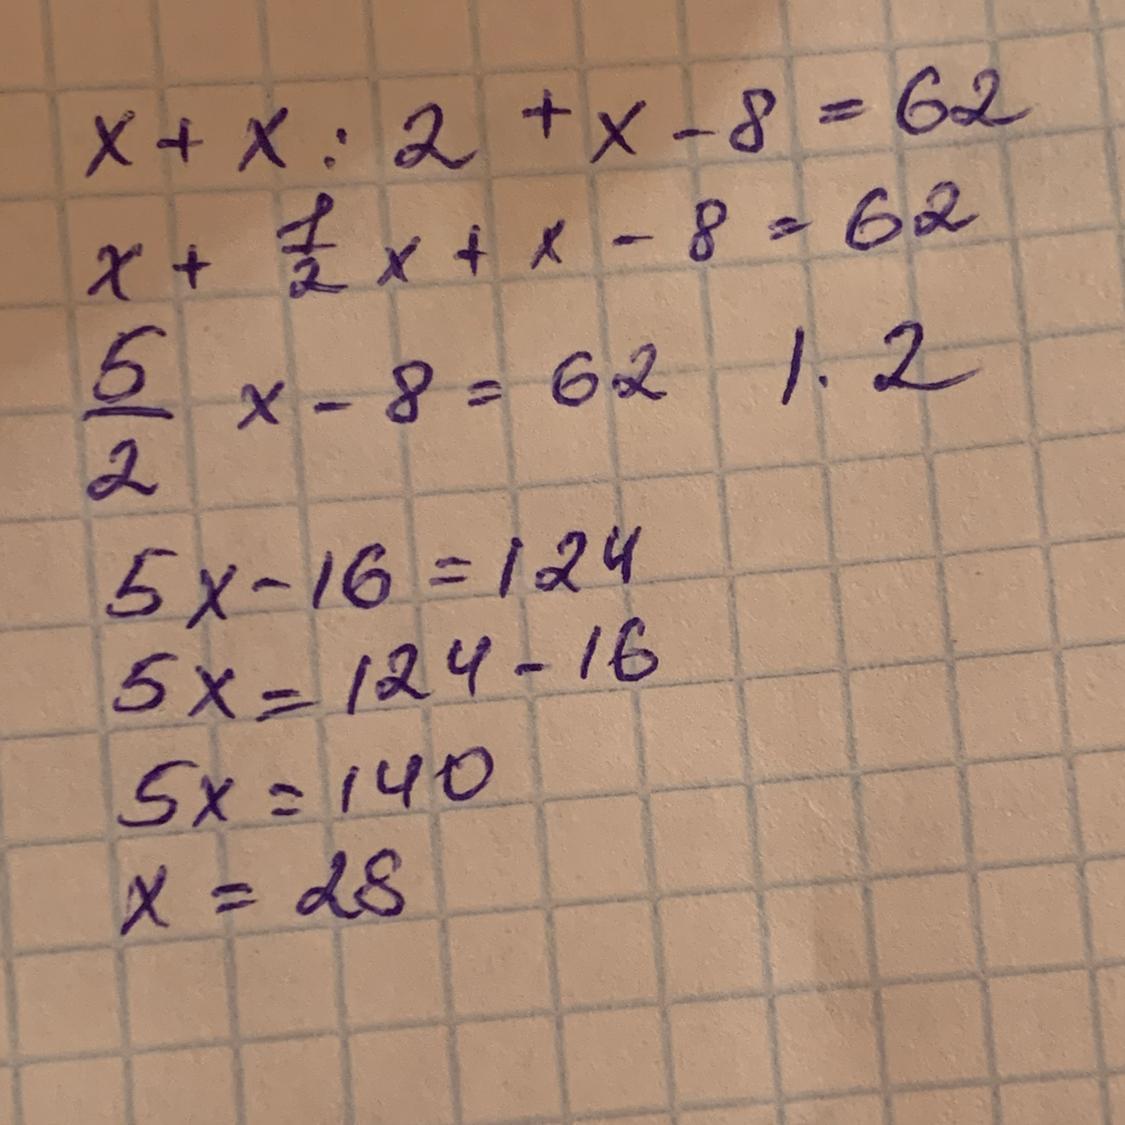 x + x : 2 + x - 8 = 62
x + 1/2 x + x - 8 = 62
5/2 x - 8 = 62 | · 2
5x - 16 = 124
5x = 124 - 16
5x = 140
x = 28